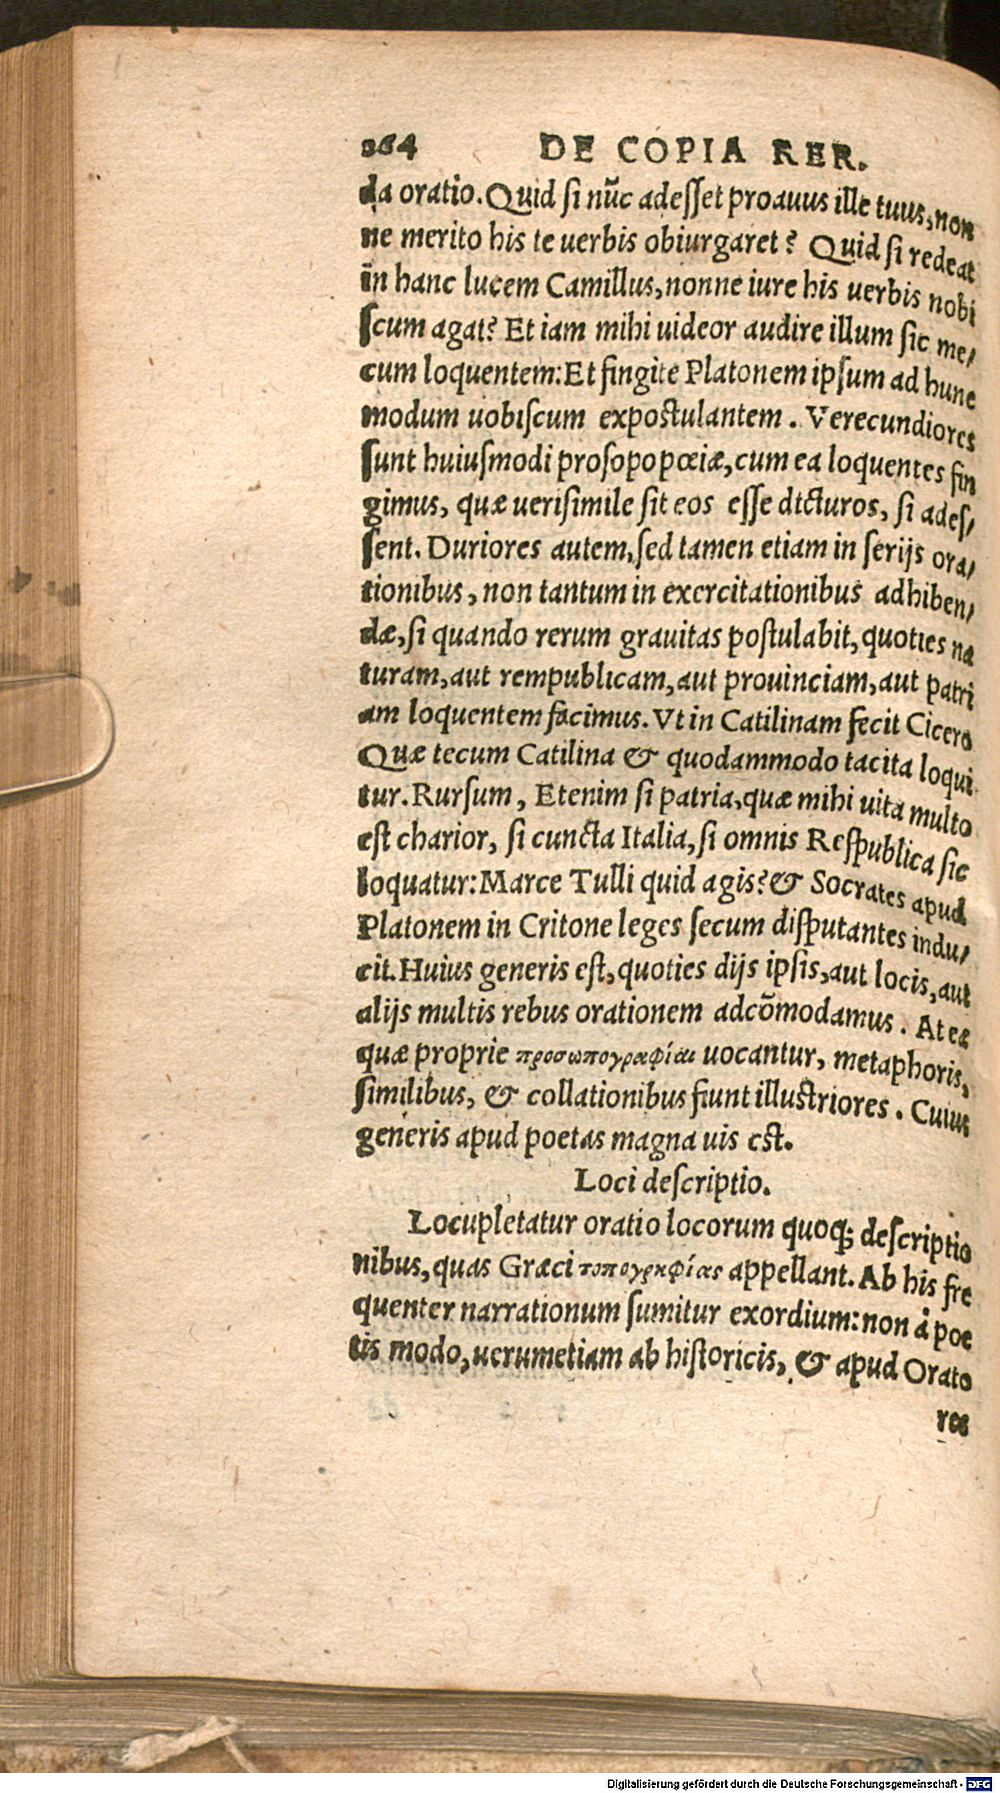 264 DE COPIA RER.
da oratio. Quid si nũc adesset proauus ille tuus, non
ne merito his te uerbis obiurgaret? Quid si redeat
in hanc lucem Camillus, nonne iure his uerbis nobi
scum agat? Et iam mihi uideor audire illum sic me,
cum loquentem: Et fingite Platonem ipsum ad hunc
modum uobiscum expostulantem. Verecundiores
sunt huiusmodi prosopopœiæ, cum ea loquentes fin
gimus, quæ uerisimile sit eos esse dicturos, si ades,
sent. Duriores autem, sed tamen etiam in serijs ora,
tionibus, non tantum in exercitationibus adhiben,
dæ, si quando rerum grauitas postulabit, quoties na
turam, aut rempublicam, aut prouinciam, aut patri
am loquentem facimus. Vt in Catilinam fecit Cicero
Quæ tecum Catilina & quodammodo tacita loqui
tur. Rursum, Etenim si patria, quæ mihi uita multo
est charior, si cuncta Italia, si omnis Respublica sic
loquatur: Marce Tulli quid agis? & Socrates apud
Platonem in Critone leges secum disputantes indu,
cit. Huius generis est, quoties dijs ipsis, aut locis, aut
alijs multis rebus orationem adcõmodamus. At eæ
quæ proprie προσωπογραφίαι uocantur, metaphoris,
similibus, & collationibus fiunt illustriores. Cuius
generis apud poetas magna uis est.
Loci descriptio.
Locupletatur oratio locorum quoq; descriptio
nibus, quas Græci τοπογραφίας appellant. Ab his fre
quenter narrationum sumitur exordium: non à poe
tis modo, uerumetiam ab historicis, & apud Orato
res
Digitalisierung gefördert durch die Deutsche Forschungsgemeinschaft - DFG